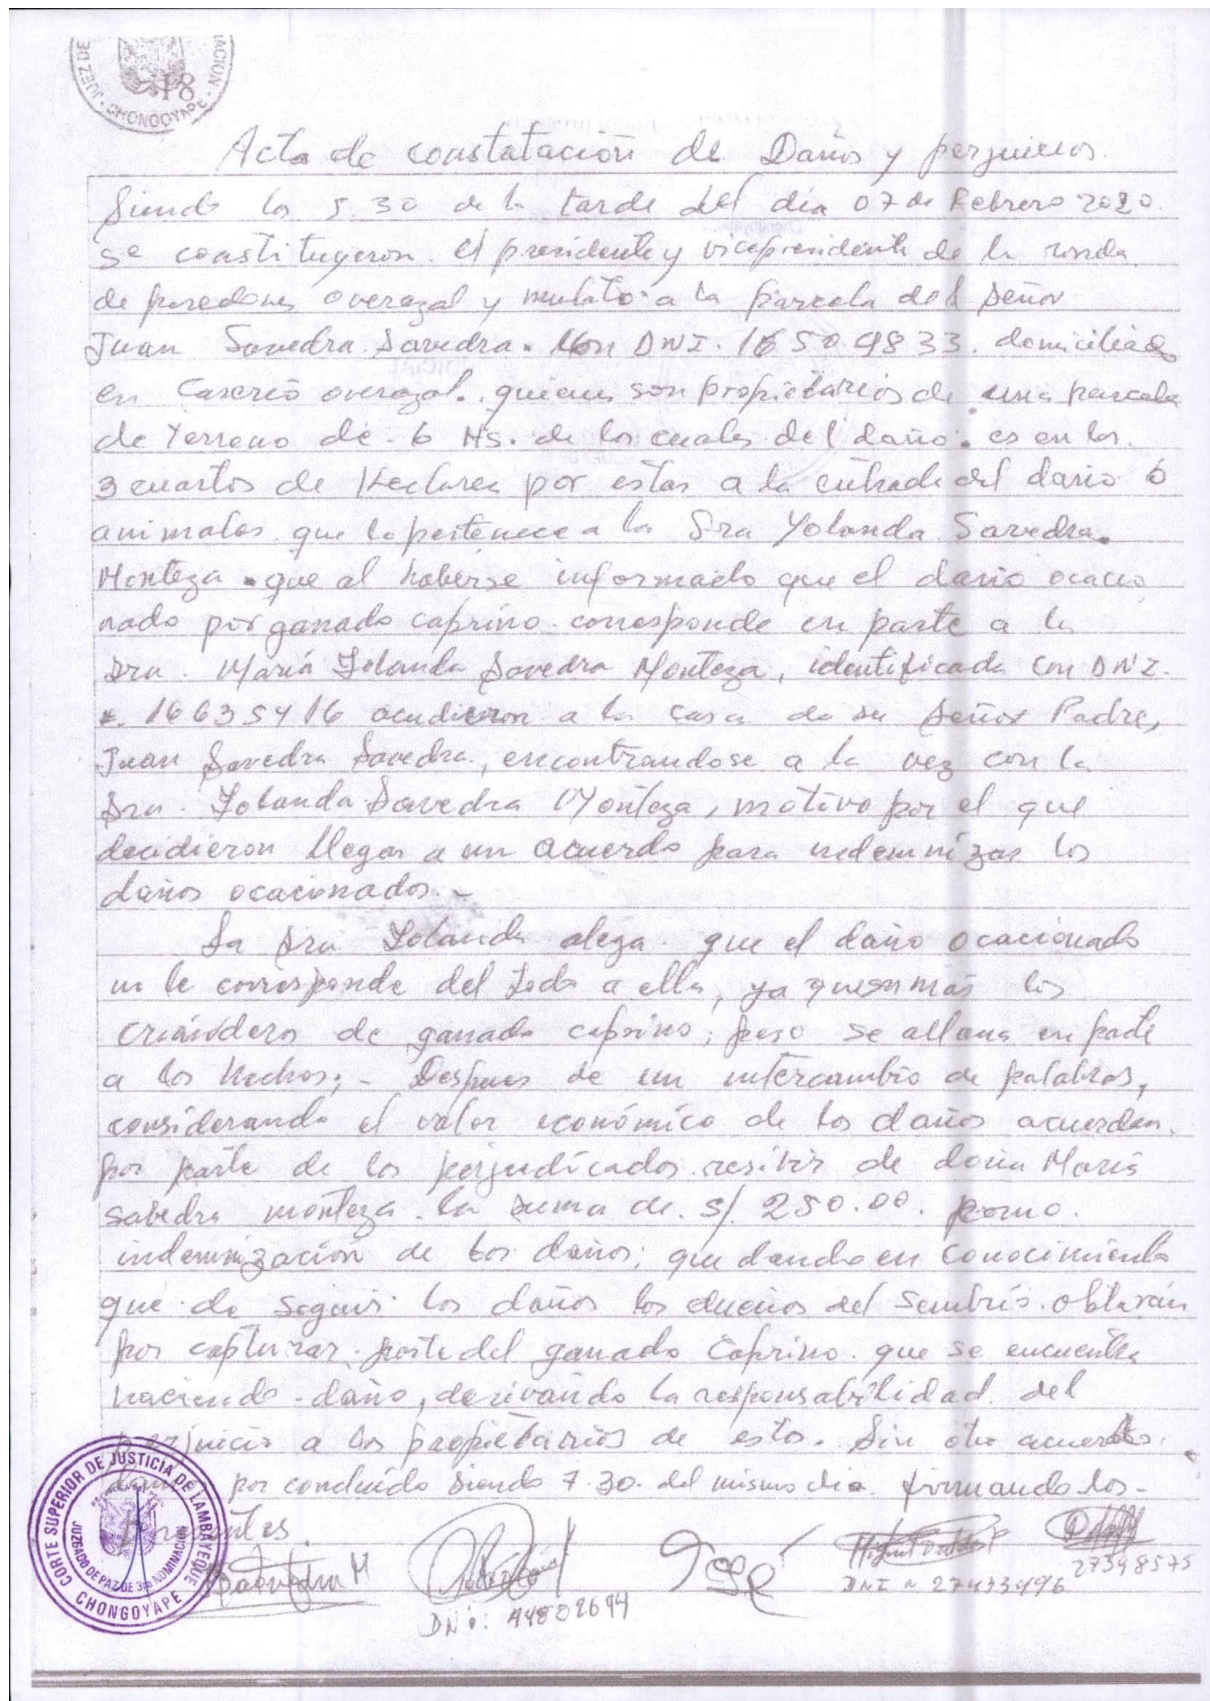 JUEZ DE NACION
18
CHONGOYAPE
Acta de constatación de Daños y perjuicios.
Siendo las 5.30 de la tarde del día 07 de Febrero 2020.
se constituyeron. el presidente y vicepresidente de la ronda
de paredones overazal y mulato a la parcela del señor
Juan Savedra Savedra. con DNI. 16509833. domiciliado
en Caserio overazal. quienes son propietarios de una parcela
de Terreno de. 6 Hs. de los cuales del daño. es en los
3 cuartos de Hectarea por estas a la entrada del dario 6
animales que le pertenece a la Sra Yolanda Savedra.
Monteza. que al haberse informado que el daño ocacio
nado por ganado caprino. corresponde en parte a la
Sra. María Yolanda Savedra Monteza, identificada con DNI.
16635416 acudieron a la casa de su señor Padre,
Juan Savedra Savedra, encontrandose a la vez con la
Sra. Yolanda Savedra Monteza, motivo por el que
decidieron llegar a un acuerdo para indemnizar los
daños ocacionados.-
La Sra Yolanda alega. que el daño ocacionado
no le corresponde del todo a ella, ya que son más los
criánderos de ganado caprino; pero se allana en parte
a los hechos;- Despues de un intercambio de palabras,
considerando el valor económico de los daños acuerdan.
por parte de los perjudicados resivir de doña María
Sabedra monteza. la suma de. S/. 250.00. como.
indemnización de los daños; quedando en conocimiento
que de seguir los daños los dueños del sembrís. obtarán
por capturar. parte del ganado Caprino. que se encuentra
haciendo - daño, derivando la responsabilidad del
perjuicio a los propietarios de estos. Sin otro acuerdo.
por concluido siendo 7.30. del mismo dia. firmando los-
CORTE SUPERIOR DE JUSTICIA DE LAMBAYEQUE
JUZGADO DE PAZ DE 3ra NOMINACION
CHONGOYAPE
Saavedra M
DNi: 44802694
DNI N 27433496
27398575